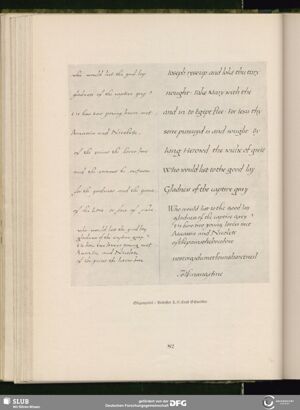 who would list the good lay
gladness of the captive grey ?
t'is how two young lovers met,
Aucassin and Nicolete,
of the pains the lover bore
and the sorrows he
for the goodness and the grace
of his love, so fair of
who would list the good lay
gladness of the captive grey ?
t'is how two lovers young met
Aucassin and Nicolete
of the pains the lover bore
Joseph rose up and toke thy tiny
nought Take Mary with the
and in to Egipt flee For Iesu thy
sonne pursuyd is and sought by
king Herowd the wiche of
Who would list to the good lay
Gladness of the captive grey
Who would list to the good lay
gladness of the captive grey ?
t'is how two young lovers met
Aucassin and Nicolete
of the pains the lover bore
82
SLUB
Wir führen Wissen.
gefördert von der
Deutschen Forschungsgemeinschaft DFG